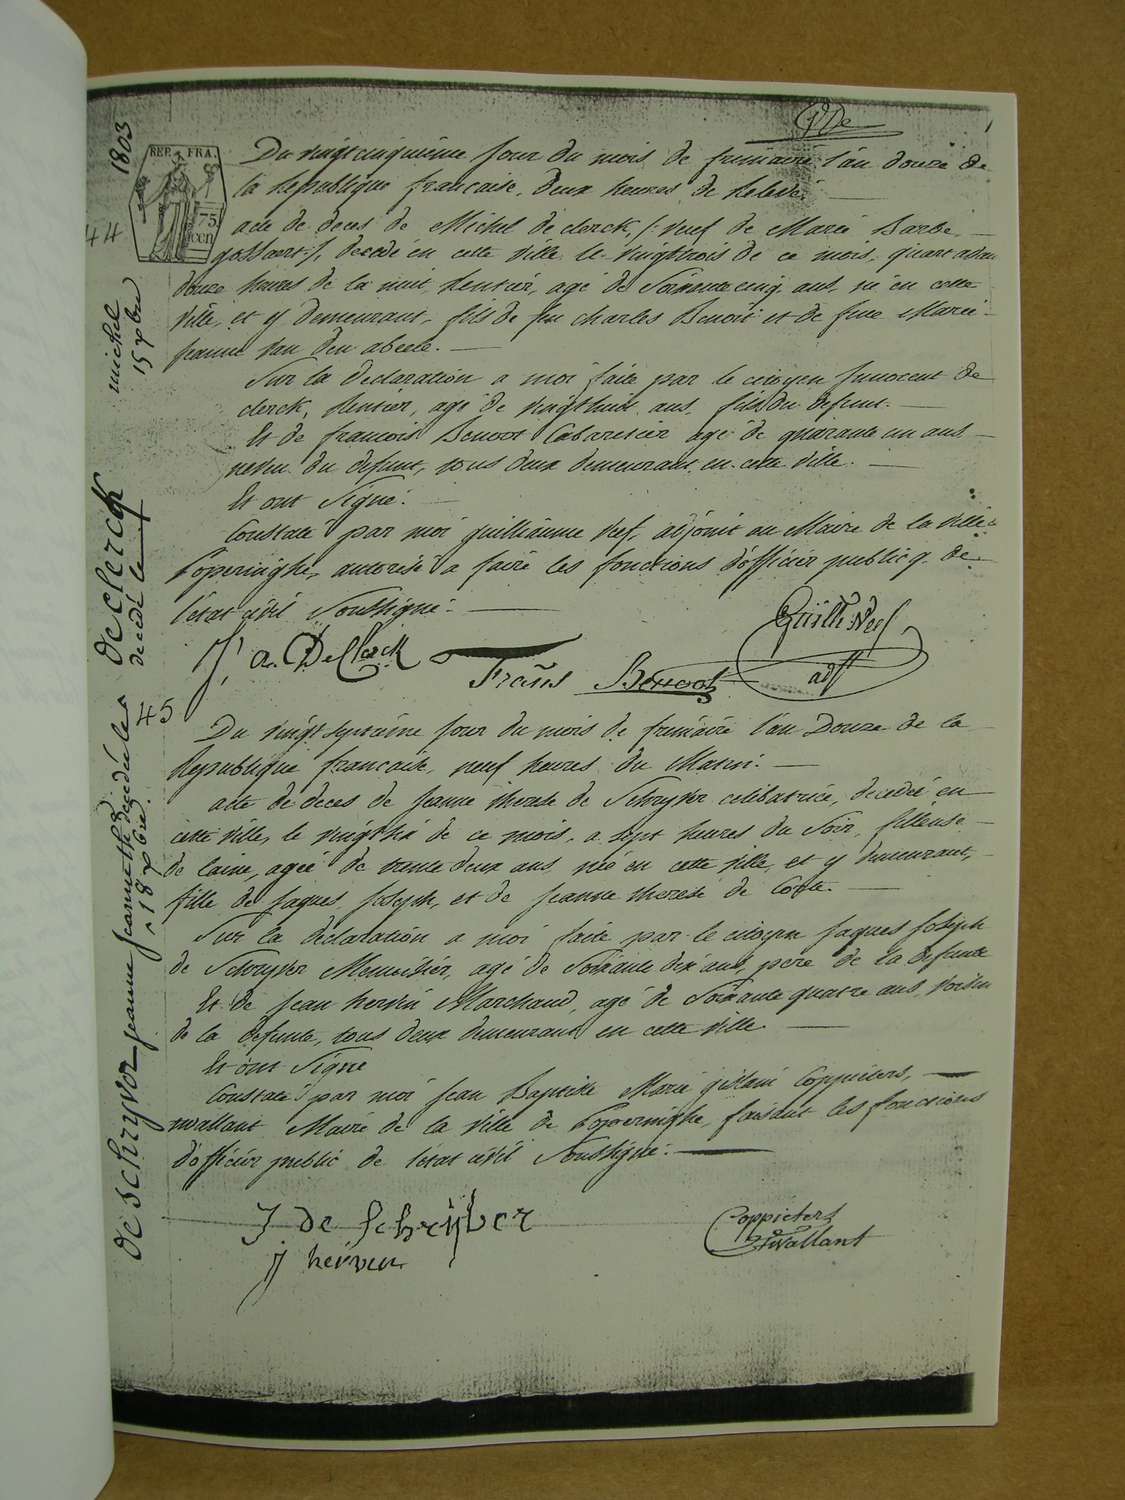 1803
REP. FRA.
75
cen
44
Du vingtcinquieme Jour du mois de frimaire l'an douze de
la Republique francaise, deux heures de Relevé.
acte de deces de Michel de clerck, /: veuf de Marie Barbe
gossaert :/, decedé en cette ville le vingttrois de ce mois, quart avan
douze heures de la nuit, Rentier, agé de Soixantecinq ans, né en cette
ville, et y demeurant, fils de feu charles Benoit et de feue Marie
Jeanne Van den abeele.
Sur la declaration a moi faite par le citoyen Innocent de
clerck, Rentier, agé de vingthuit ans, fils du defunt.
Et de francois Benoot Cabaretier agé de quarante un ans
neveu du defunt, tous deux demeurant en cette ville.
Et ont Signé.
Constaté par moi guilliaume Neef, adjoint au Maire de la ville
Poperinghe, autorisé a faire les fonctions d'officier publicq de
l'etat civil Soussigné.
J, a. DeClerck
Frans Benoot
Guill: Neef
adjt
michel
15 xbre
declerck
decedé le
45
Du vingt septieme Jour du mois de frimaire l'an Douze de la
Republique francaise, neuf heures du Matin.
acte de deces de Jeanne therese de Schryver celibatrice, decedée en
cette ville, le vingtsix de ce mois, a sept heures du Soir, filleuse
de laine, ageé de trente deux ans née en cette ville, et y demeurant,
fille de Jaques Joseph, et de Jeanne therese de Conte.
Sur la declaration a moi faite par le citoyen Jaques Joseph
de Schryver Menuisier, agé de Soixante dix ans, pere de la defunte
Et de Jean hervin Marchand, agé de Soixante quatre ans, voisin
de la defunte, tous deux demeurant en cette ville.
Et ont Signe
Constaté par moi Jean Baptiste Marie gislain Coppieters,
nvallant Maire de la ville de Poperinghe, faisant les fonctions
d'officier public de l'etat civil Soussigné.
J de Schrijver
j herven
Coppieters
Stevallant
deschryver jeanne Jeanne th decedée le
18 xbre